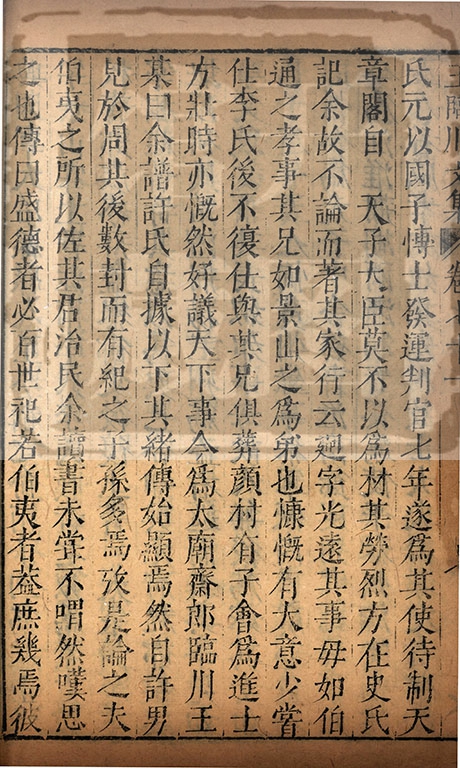 王臨川文集 卷七十一
氏元以國子博士發運判官七年遂爲其使待制天
章閣自 天子大臣莫不以爲材其勞烈方在史氏
記余故不論而著其家行云逈字光遠其事毋如伯
通之孝事其兄如景山之爲弟也慷慨有大意少嘗
仕李氏後不復仕與其兄俱葬顔村有子會爲進士
方壯時亦慨然好議天下事今爲太廟齋郎臨川王
某曰余譜許氏自據以下其緒傳始顯焉然自許男
見於周其後數封而有紀之子孫多焉攷是論之夫
伯夷之所以佐其君治民余讀書未嘗不喟然嘆思
之也傳曰盛德者必百世祀若伯夷者葢庶幾焉彼